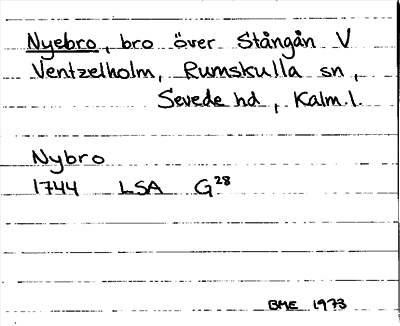 Nyebro, bro över Stångån V
Ventzelholm, Rumskulla sn,
Sevede hd, Kalm.l.
Nybro
1744 LSA G28
BME 1973